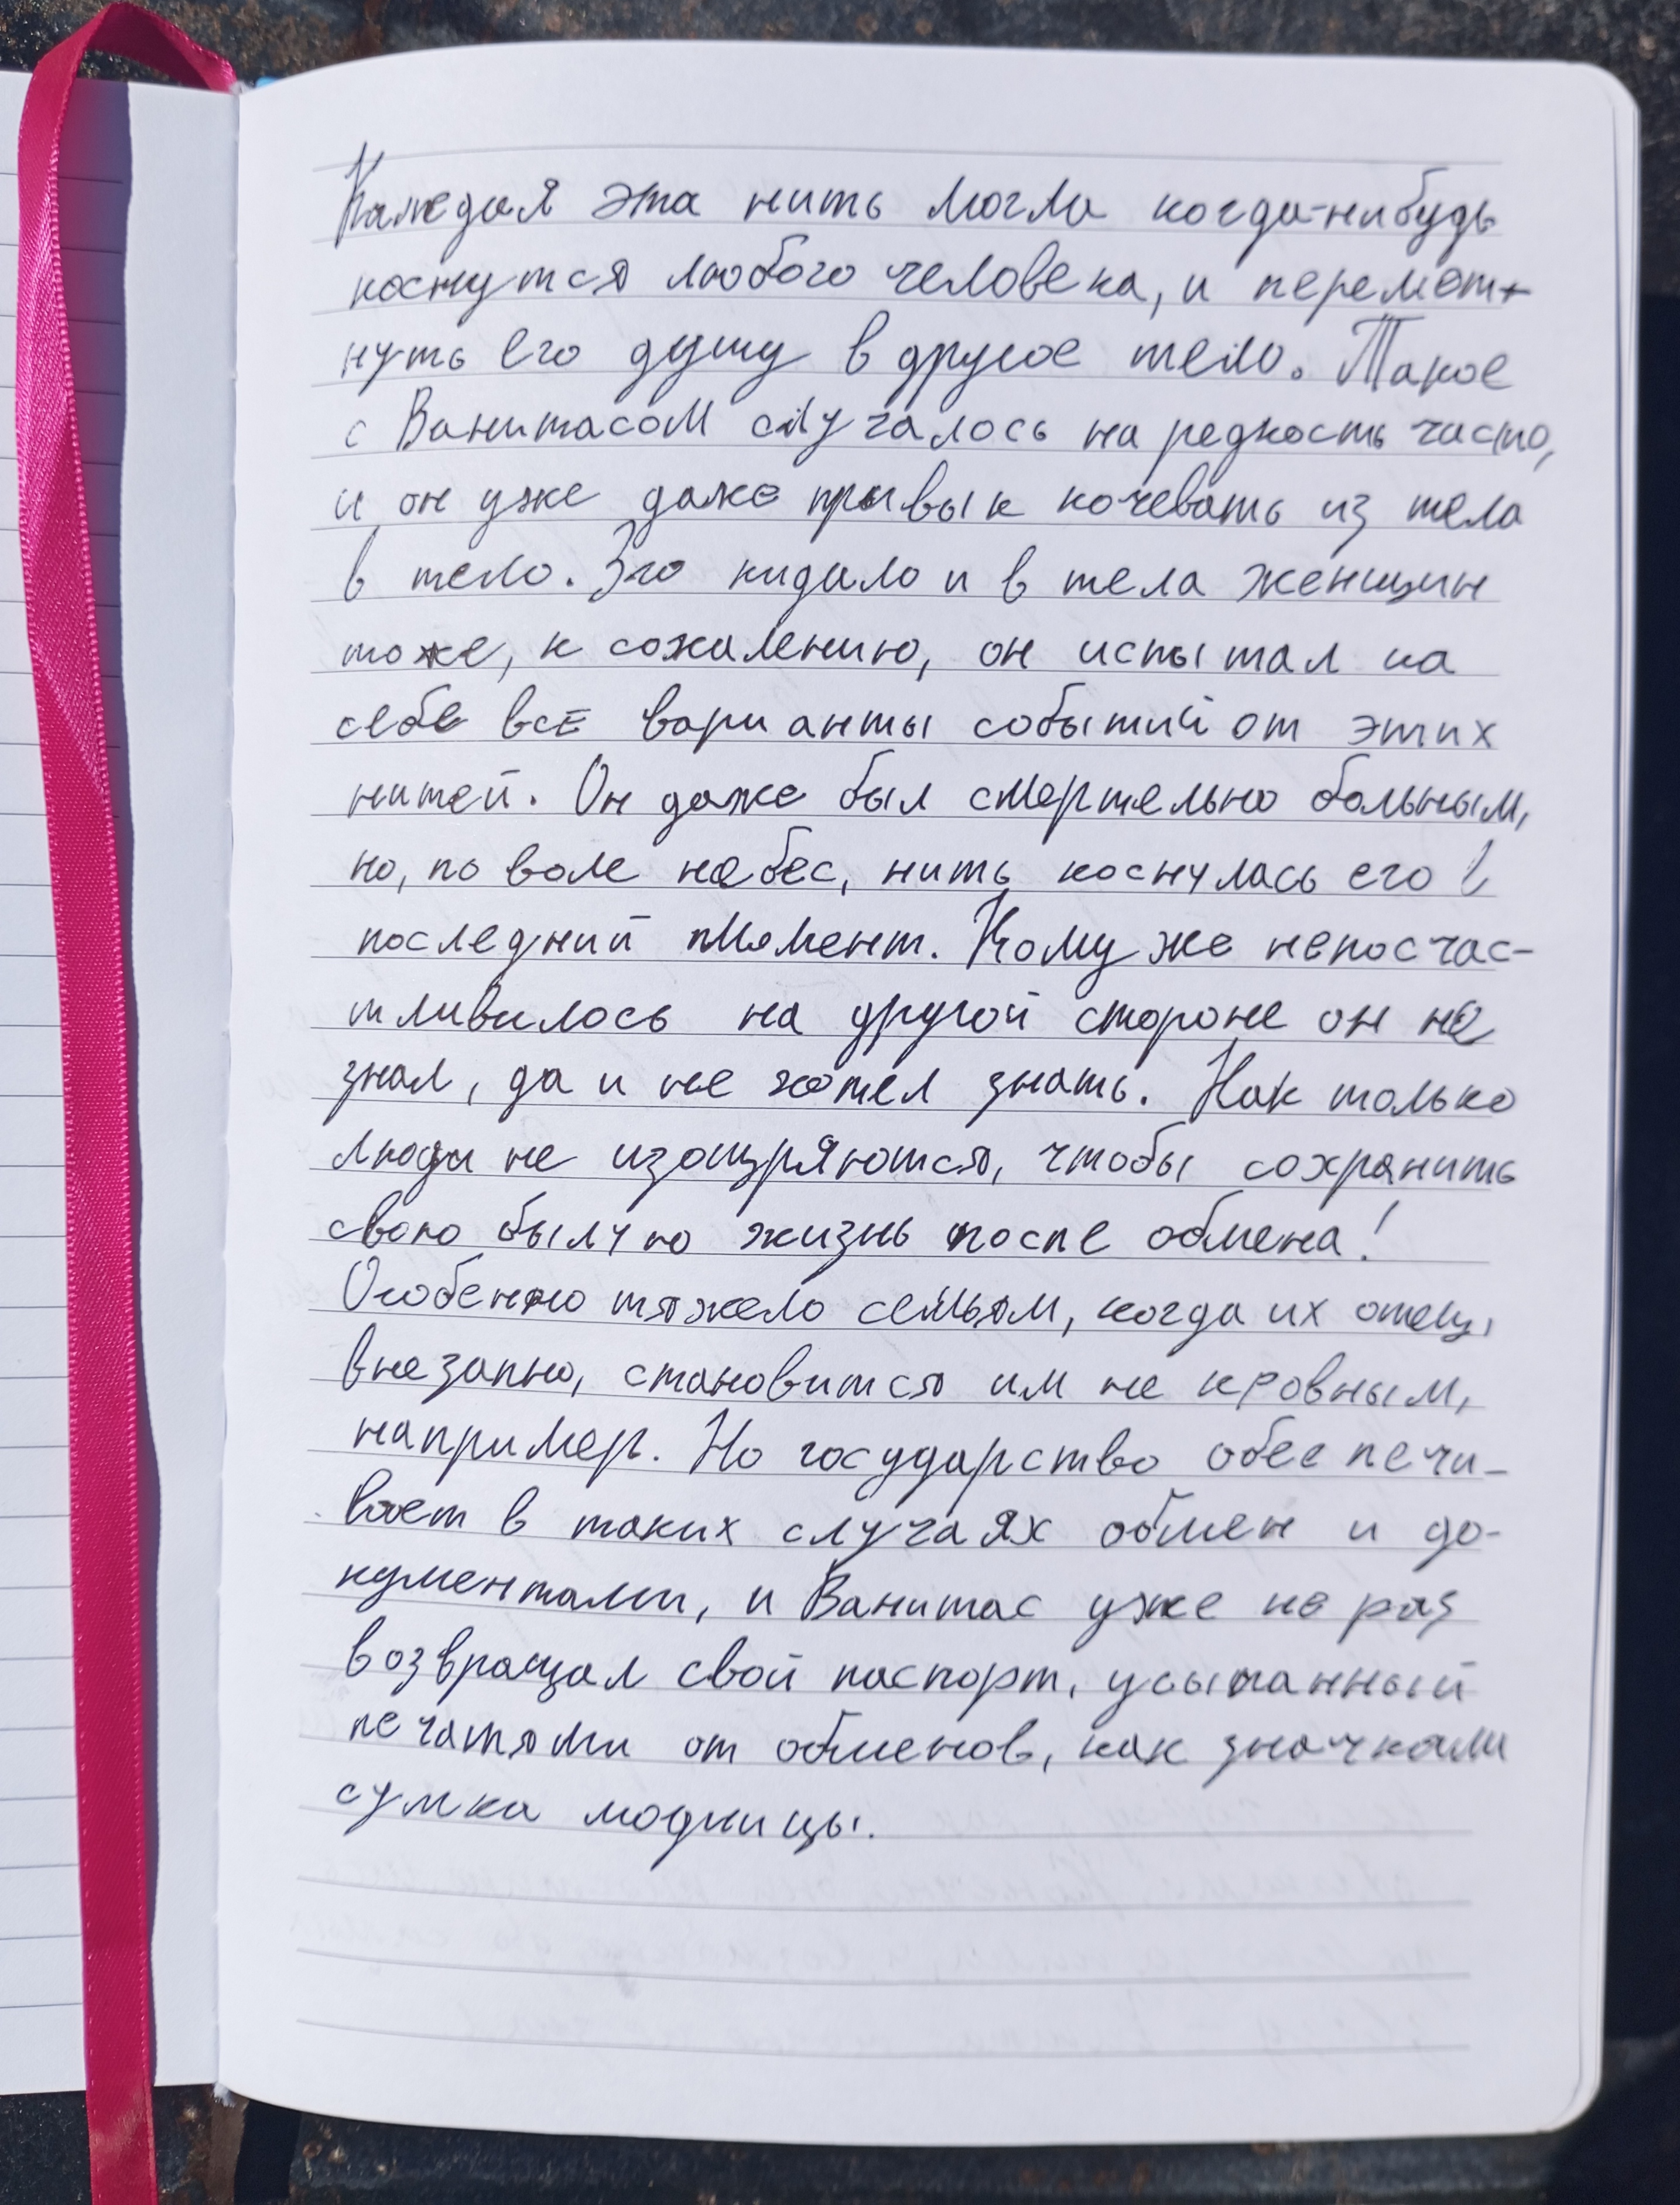 Каждая эта нить могла когда-нибудь
коснутся любого человека, и перемет-
нуть его душу в другое тело. Такое
с Ванитасом случалось на редкость часто,
и он уже даже привык кочевать из тела
в тело. Его кидало и в тела женщин
тоже, к сожалению, он испытал на
себе все варианты событий от этих
нитей. Он даже был смертельно больным,
но, по воле небес, нить коснулась его в
последний момент. Кому же непосчас-
тливилось на другой стороне он не
знал, да и не хотел знать. Как только
люди не изощряются, чтобы сохранить
свою былую жизнь после обмена!
Особенно тяжело семьям, когда их отец,
внезапно, становится им не кровным,
например. Но государство обеспечи-
вает в таких случаях обмен и до-
кументами, и Ванитас уже не раз
возвращал свой паспорт, усыпанный
печатями от обменов, как значками
сумка модницы.